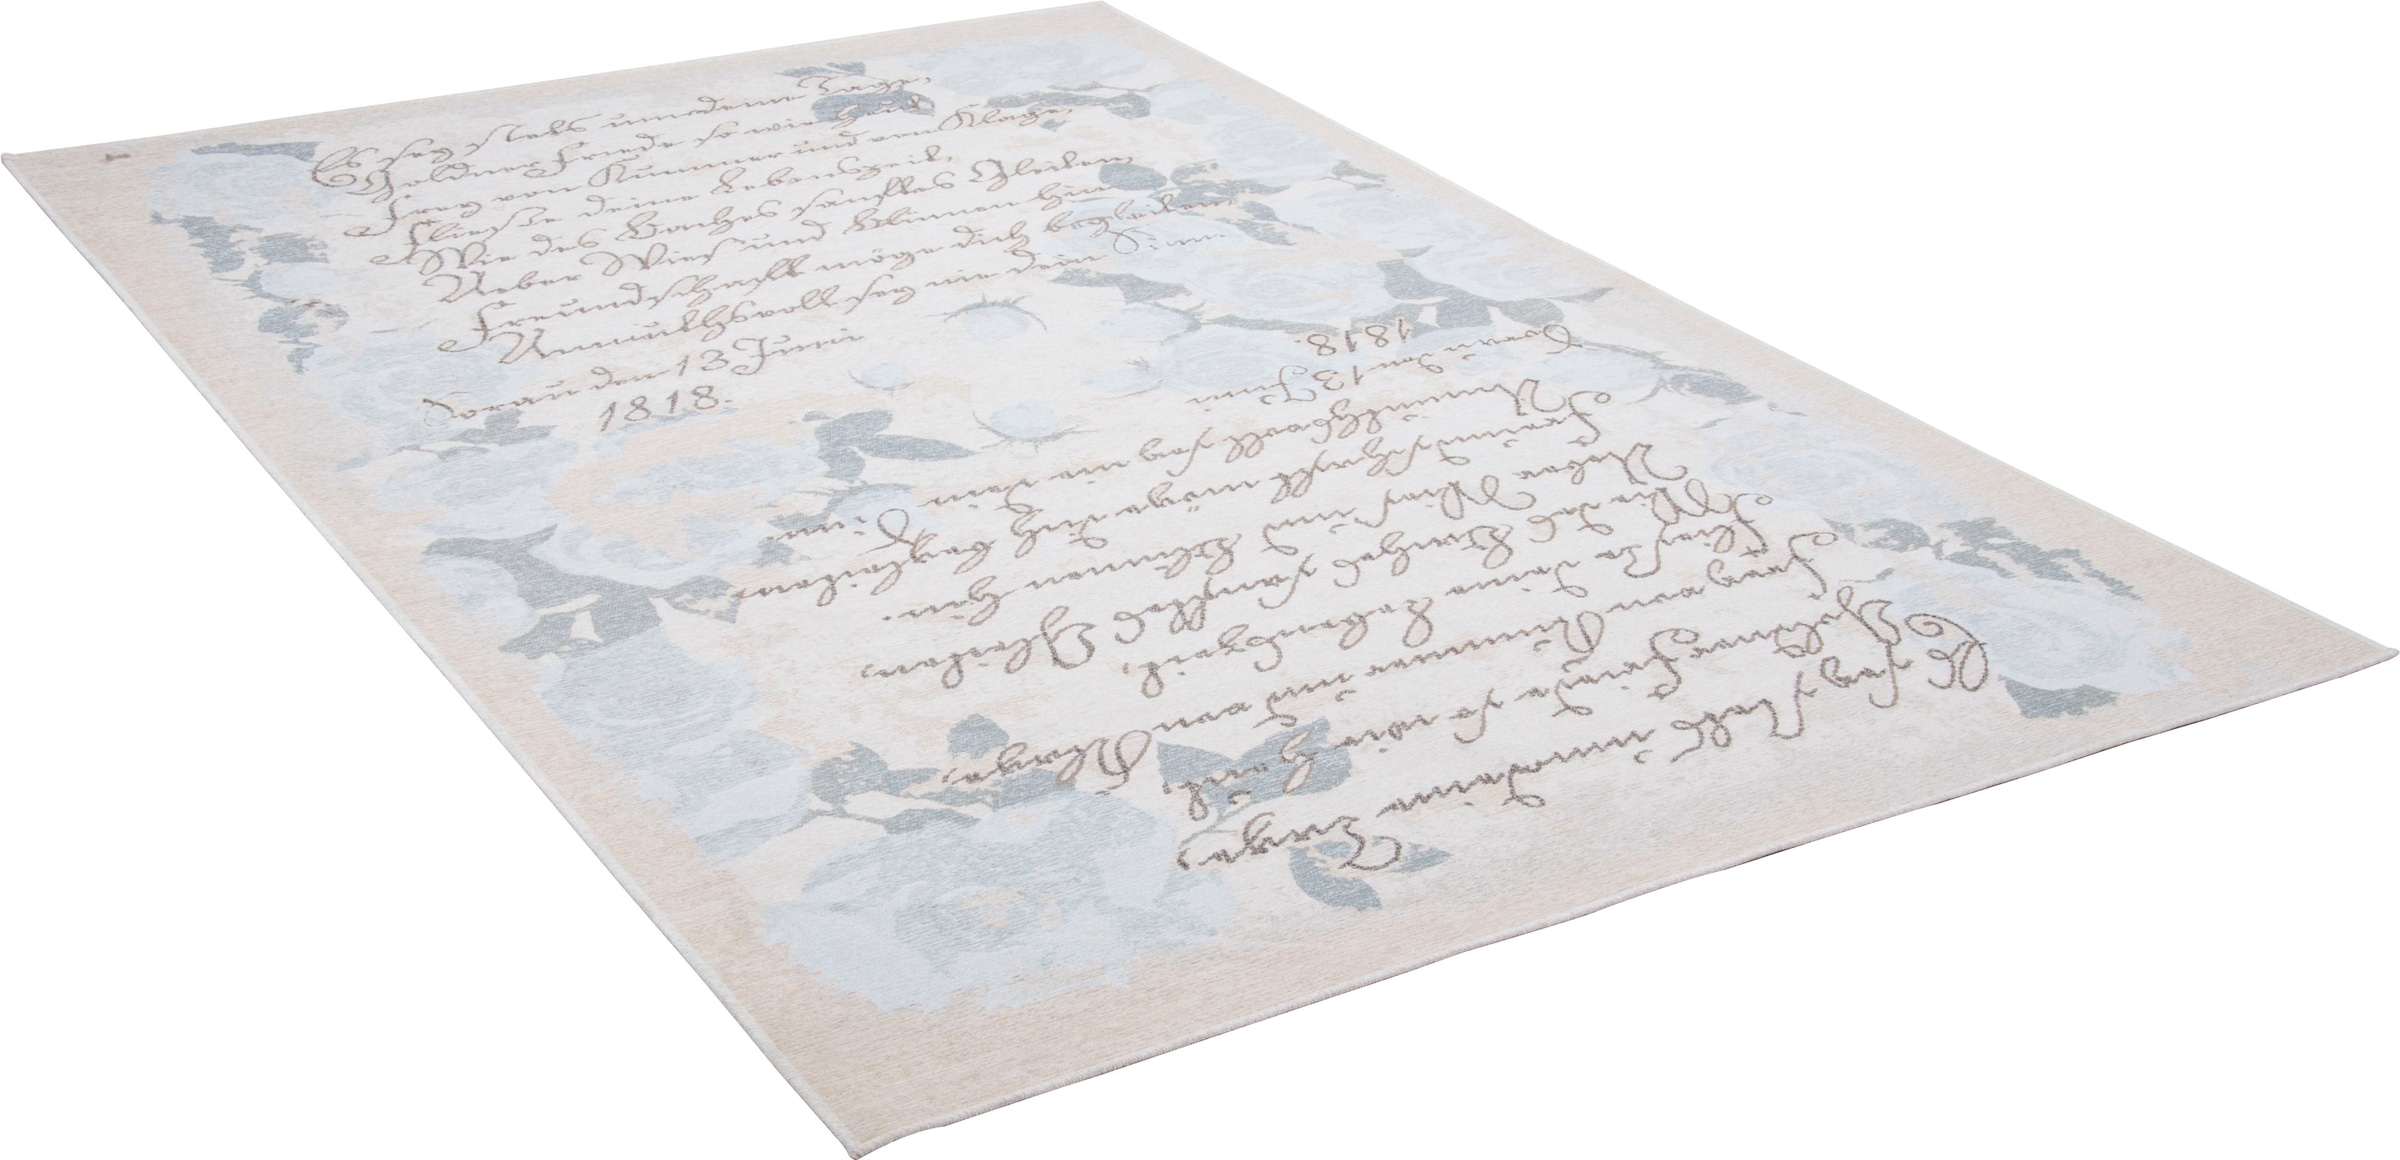 Es sey stets um deine Tage,
Goldner Friede so wie heut,
Frey von Kummer und von Klage,
Fliesse deine Lebenszeit,
Wie des Baches sanftes Gleiten,
Ueber Wies' und Blumen hin
Freundschaft möge dich begleiten,
Anmuthsvoll sey wie dein Sinn.
Sorau den 13 Juni
1818.
Es sey stets um deine Tage,
Goldner Friede so wie heut,
Frey von Kummer und von Klage,
Fliesse deine Lebenszeit,
Wie des Baches sanftes Gleiten,
Ueber Wies' und Blumen hin.
Freundschaft möge dich begleiten,
Anmuthsvoll sey wie dein Sinn.
Sorau den 13 Juni
1818.